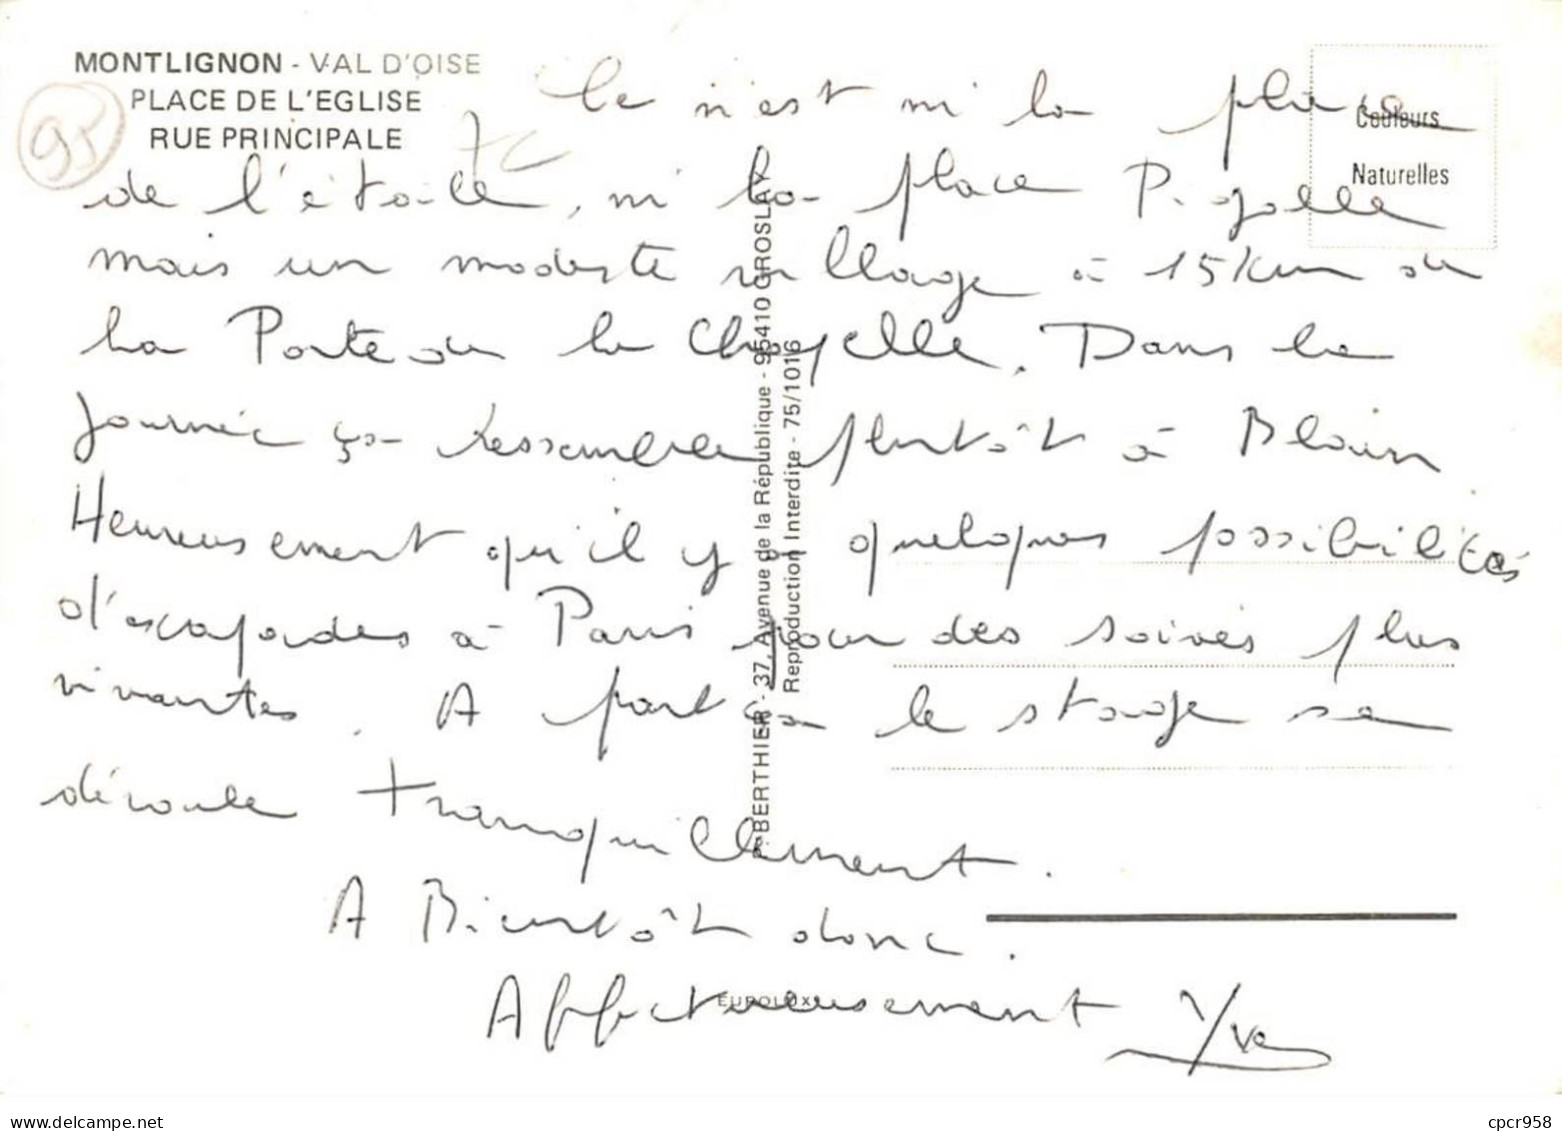 MONTLIGNON - VAL D'OISE
PLACE DE L'EGLISE
RUE PRINCIPALE
95
Couleurs
Naturelles
Ce n'est ni la place
de l'étoile, ni la place Pigalle
mais un modeste village à 15 km de
la Porte de la Chapelle. Dans la
journée ça ressemble plutôt à Blain
Heureusement qu'il y a quelques possibilités
d'escapades à Paris pour des soirées plus
vivantes. A part ça le stage se
déroule tranquillement.
A Bientôt donc.
Affectueusement Yve
BERTHIER - 37, Avenue de la République - 95410 GROSLAY
Reproduction Interdite - 75/1016
EUROLUX
cpcr958